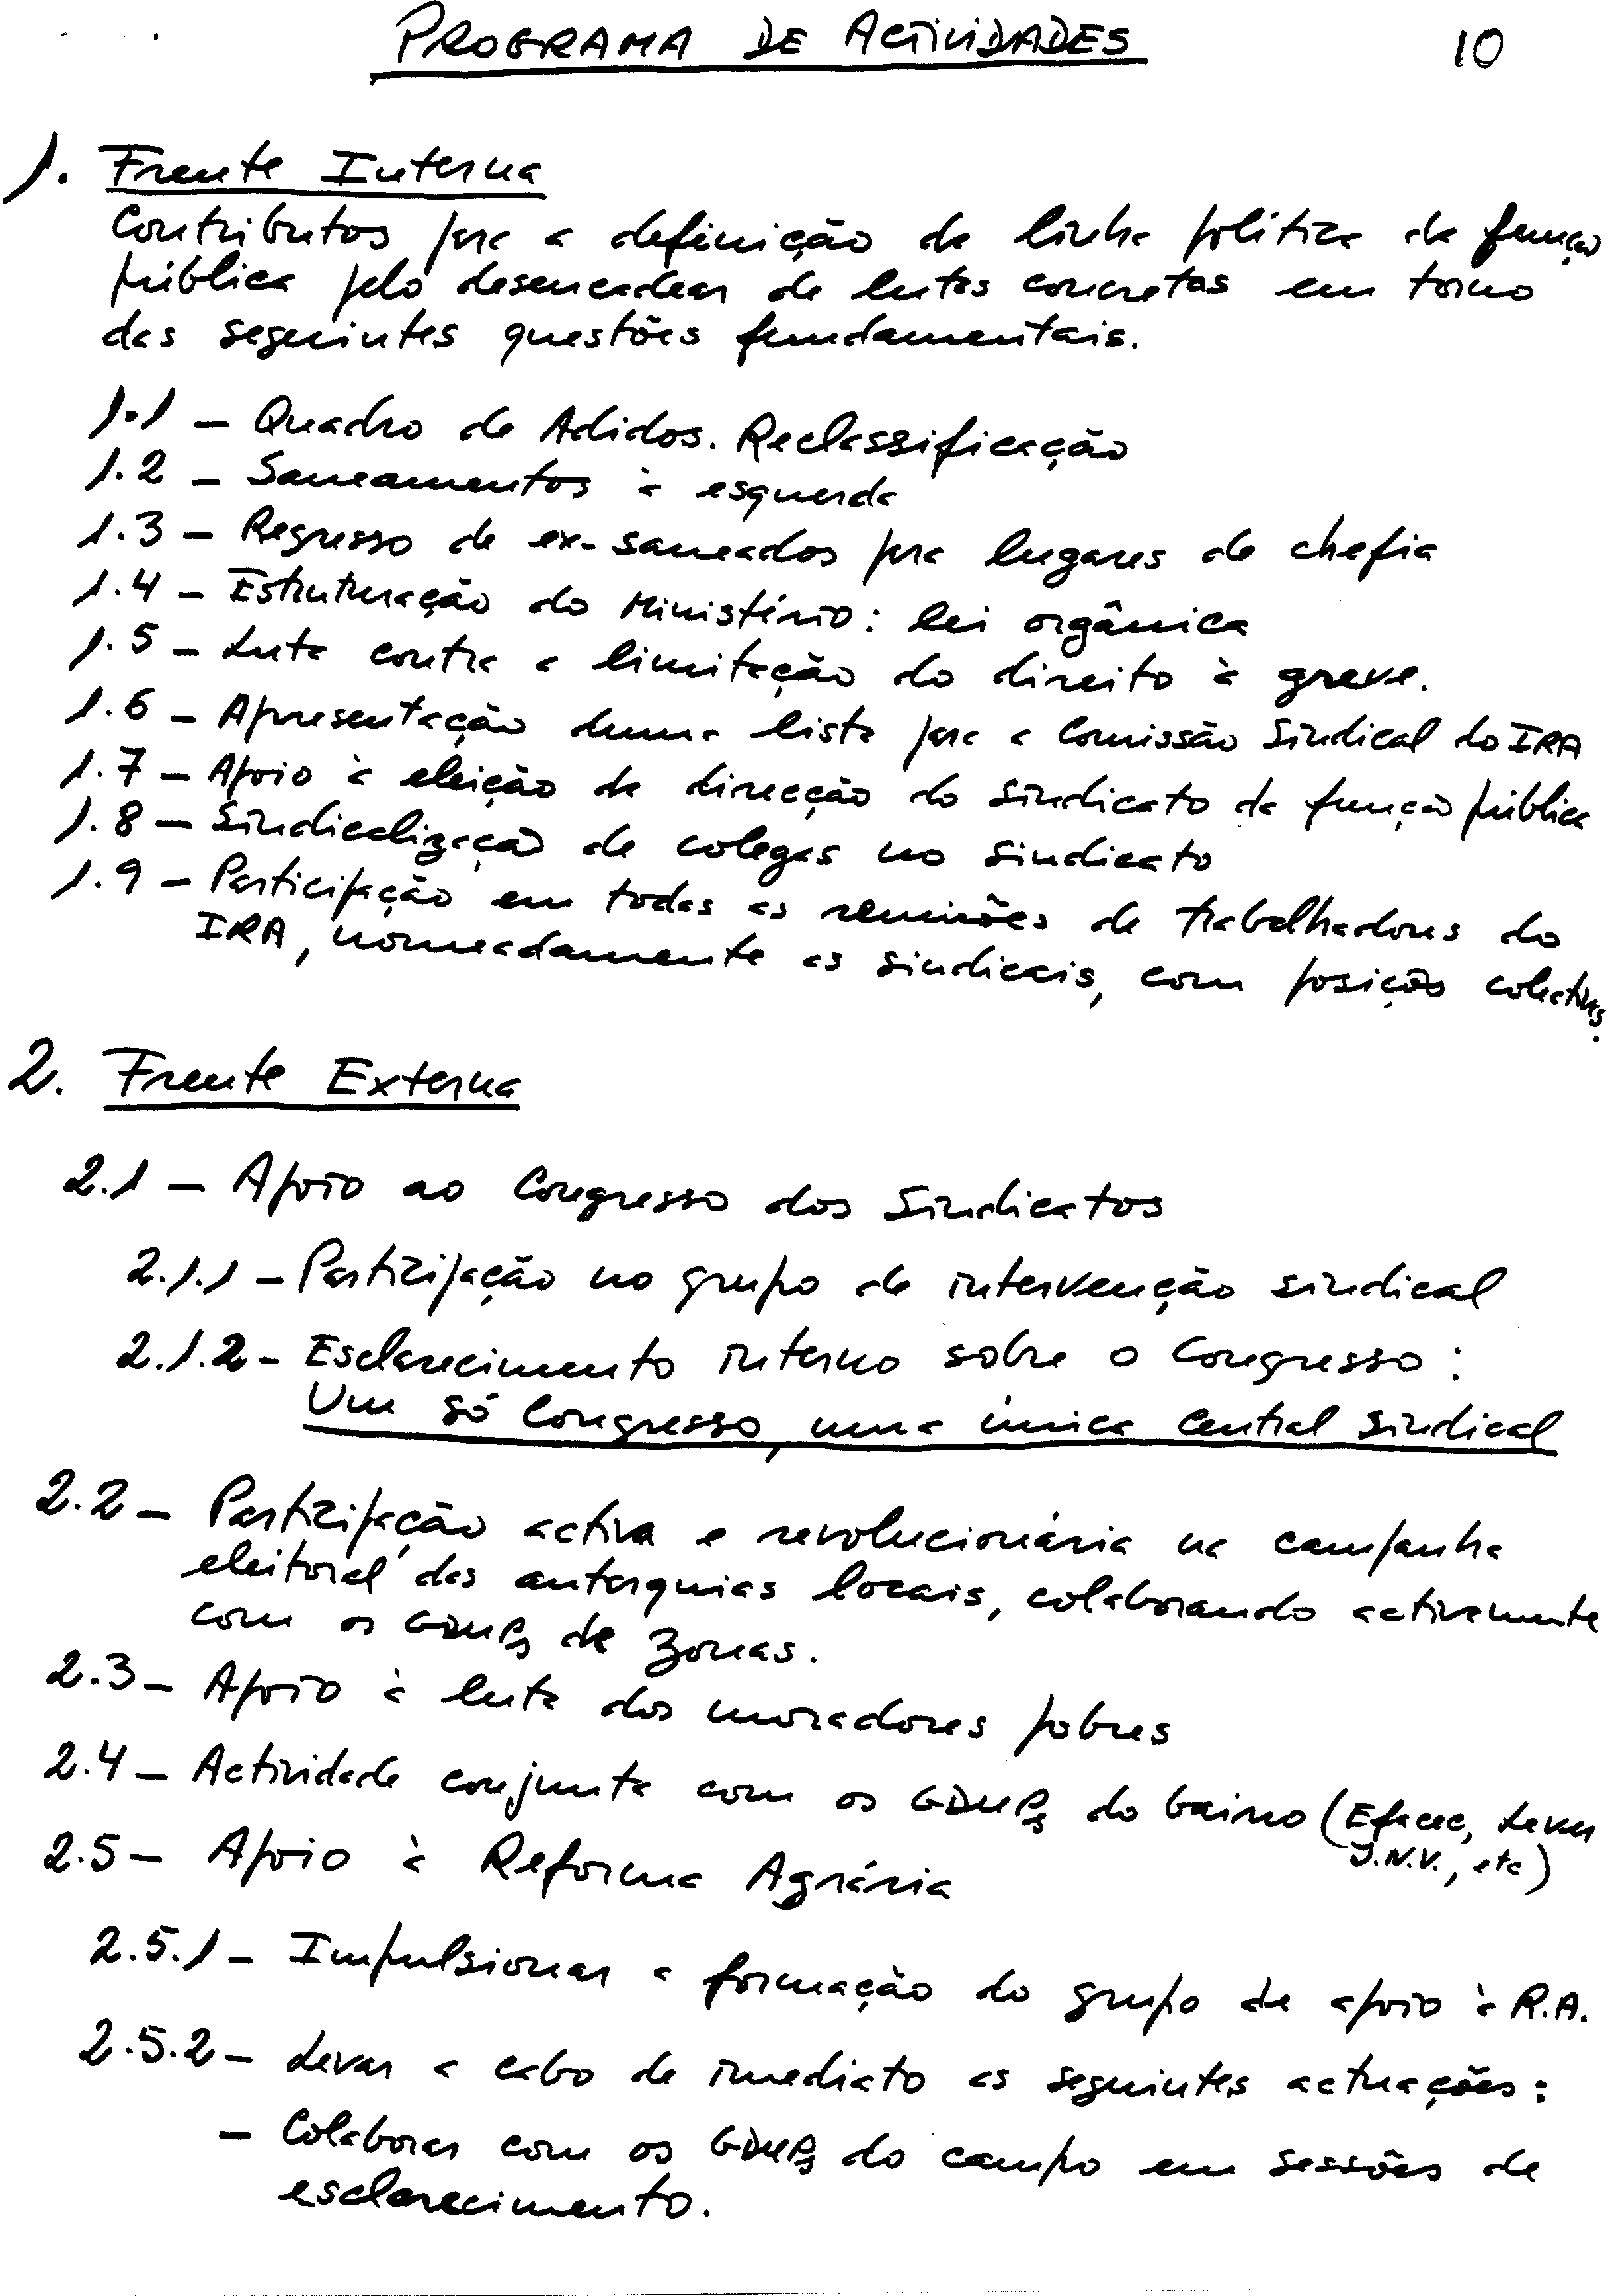 PROGRAMA DE ACTIVIDADES 10
1. Frente Interna
Contributos para a definição da linha política da função
pública pelo desencadear de lutas concretas em torno
das seguintes questões fundamentais.
1.1 - Quadro de Adidos. Reclassificação
1.2 - Saneamentos à esquerda
1.3 - Regresso de ex-saneados para lugares de chefia
1.4 - Estruturação do Ministério: lei orgânica
1.5 - Luta contra a limitação do direito à greve.
1.6 - Apresentação duma lista para a Comissão Sindical do IRA
1.7 - Apoio à eleição da direcção do sindicato da função pública
1.8 - Sindicalização de colegas no sindicato
1.9 - Participação em todas as reuniões de trabalhadores do
IRA, nomeadamente as sindicais, com posição colectiva.
2. Frente Externa
2.1 - Apoio ao Congresso dos Sindicatos
2.1.1 - Participação no grupo de intervenção sindical
2.1.2 - Esclarecimento interno sobre o Congresso:
Um só Congresso, uma única central sindical
2.2 - Participação activa e revolucionária na campanha
eleitoral das autarquias locais, colaborando activamente
com os GDUPs de zonas.
2.3 - Apoio à luta dos moradores pobres
2.4 - Actividade conjunta com os GDUPs do bairro (Efacec, Lever
I.N.V., etc)
2.5 - Apoio à Reforma Agrária
2.5.1 - Impulsionar a formação do grupo de apoio à R.A.
2.5.2 - Levar a cabo de imediato as seguintes actuações:
- Colaborar com os GDUPs do campo em sessões de
esclarecimento.